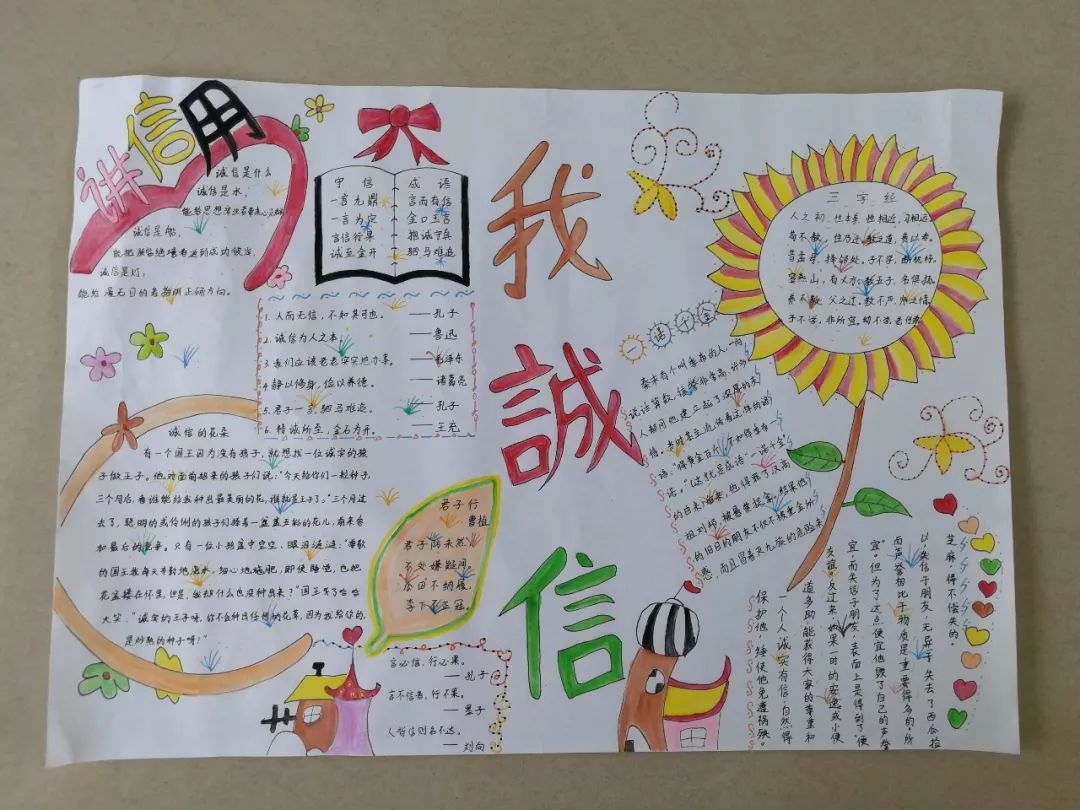 讲信用
诚信是什么
诚信是水，
诚信是船，
诚信是灯，
守信 成语
一言九鼎 言而有信
一言为定 金口玉言
言信行果 抱诚守真
诚至金开 驷马难追
1.人而无信，不知其可也。 ——孔子
2.诚信为人之本。 ——鲁迅
3.我们应该老老实实地办事。 ——毛泽东
4.静以修身，俭以养德。 ——诸葛亮
5.君子一言，驷马难追。 ——孔子
6.精诚所至，金石为开。 ——王充
我
誠
信
三字经
人之初，性本善，性相近，习相远，
苟不教，性乃迁，教之道，贵以专。
昔孟母，择邻处，子不学，断机杼。
窦燕山，有义方，教五子，名俱扬。
养不教，父之过，教不严，师之惰。
子不学，非所宜，幼不学，老何为
一诺千金
秦末有个叫季布的人，一向
说话算数，信誉非常高，许多
人都同他建立起了深厚的友
情。当时甚至流传着这样的谚
语：“得黄金百斤，不如得季布一
诺。”（这就是成语“一诺千金”
的由来）后来，他得罪了汉高
祖刘邦，被悬赏捉拿。结果他
的旧日的朋友不仅不被重金所
惑，而且冒着灭九族的危险来
保护他，使他免遭祸殃。
一个人诚实有信，自然得
道多助，能获得大家的尊重和
友谊。反过来，如果贪图一时的安逸或小便
宜，而失信于朋友，表面上是得到了“便
宜”，但为了这点便宜他毁了自己的声誉
而声誉相比于物质是重要得多的。所
以，失信于朋友，无异于失去了西瓜捡
芝麻，得不偿失的。
诚信的花朵
有一个国王因为没有孩子，就想找一位诚实的孩
子做王子。他对面前招来的孩子们说：“今天给你们一粒种子，
三个月后，看谁能给我种出最美丽的花，谁就是王子了。”三个月过
去了，聪明的或伶俐的孩子们捧着一盆盆五彩的花儿，前来参
和最后的竞争。只有一位小孩盆中空空，眼泪涟涟：“尊敬
的国王我每天辛勤地浇水，细心地施肥，即使睡觉，也把
花盆搂在怀里，但是，它却什么也没种出来？”国王笑了哈哈
大笑，“诚实的王子呀，你不会种出任何的花草，因为我给你的，
是炒熟的种子呀！”
君子行
曹植
君子防未然，
不处嫌疑间，
瓜田不纳履，
李下不正冠。
言必信，行必果。
——孔子
言不信者，行不果。
——墨子
人背信则名不达。
——刘向